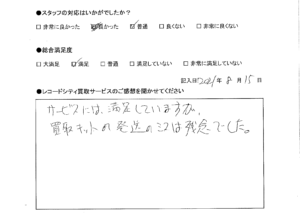 ●スタッフの対応はいかがでしたか？
□ 非常に良かった □ 良かった □ 普通 □ 良くない □ 非常に良くない
●総合満足度
□ 大満足 □ 満足 □ 普通 □ 満足していない □ 非常に満足していない
記入日 年 8 月 15 日
●レコードシティ買取サービスのご感想を聞かせてください
サービスには、満足していますが、
買取キットの発送のミスは残念でした。